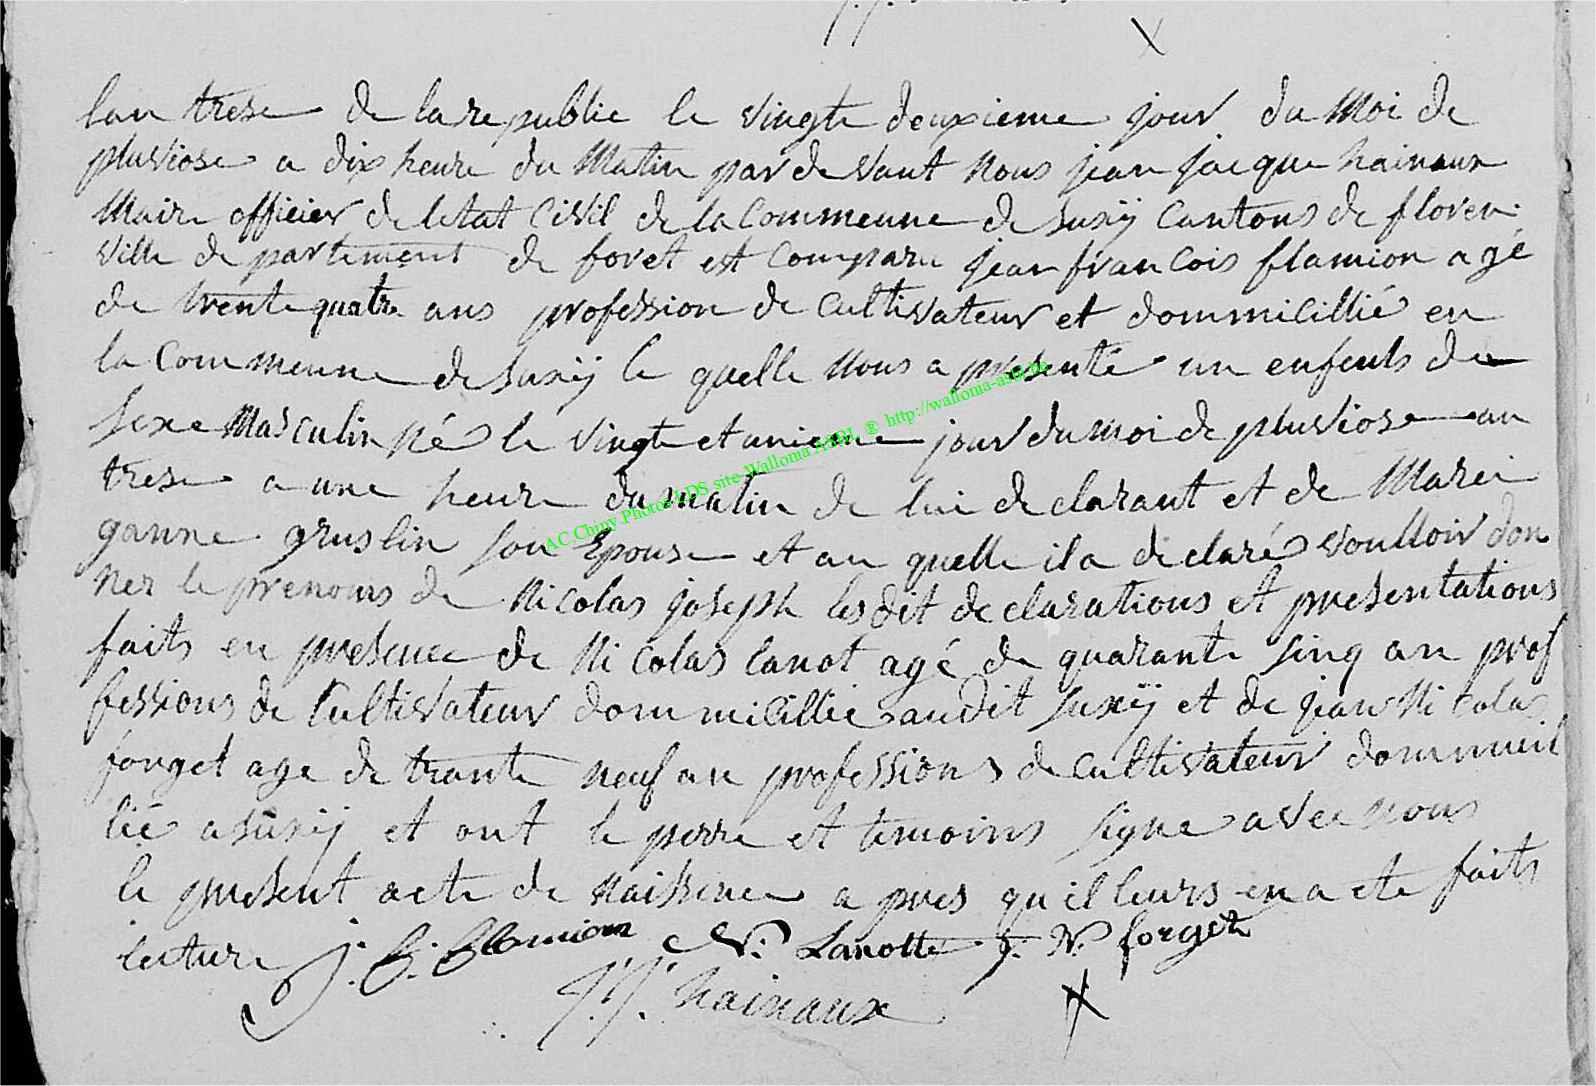 lan trese de la republic le vingte deuxieme jour du Moi de
pluviose a dix heure du Matin par devant Nous jean jacque hainaux
Maire officier de letat Civil de la Commeune de suxÿ Cantons de floren
ville departement de foret est Comparu jean francois flamion agé
de trente quatre ans profession de Cultivateur et dommicillié en
la Commeune de suxÿ le quelle Nous a presenté un enfents du
sexe Masculin né le vingte et unieme jour du moi de pluviose an
trese a une heure du matin de lui declarant et de Marei
ganne gruslin son Epouse et au quelle il a declaré voulloir don
ner le prenoms de Nicolas joseph les dit declarations et presentations
faits en presence de Nicolas lanot agé de quarante sinq an prof
fessions de Cultivateur dommicillié audit suxÿ et de jean Nicolas
forget age de trante neuf an professions de Cultivateur dommicil
lié a suxÿ et ont le perre et temoins signe avec nous
le present acte de Naissence apres qu il leurs en a ete faits
lecture J. f. flamion N. Lanotte J. N. forget
J. J. hainaux
AC Chiny Photos LDS site Walloma ASBL ® http://walloma-asbl.be